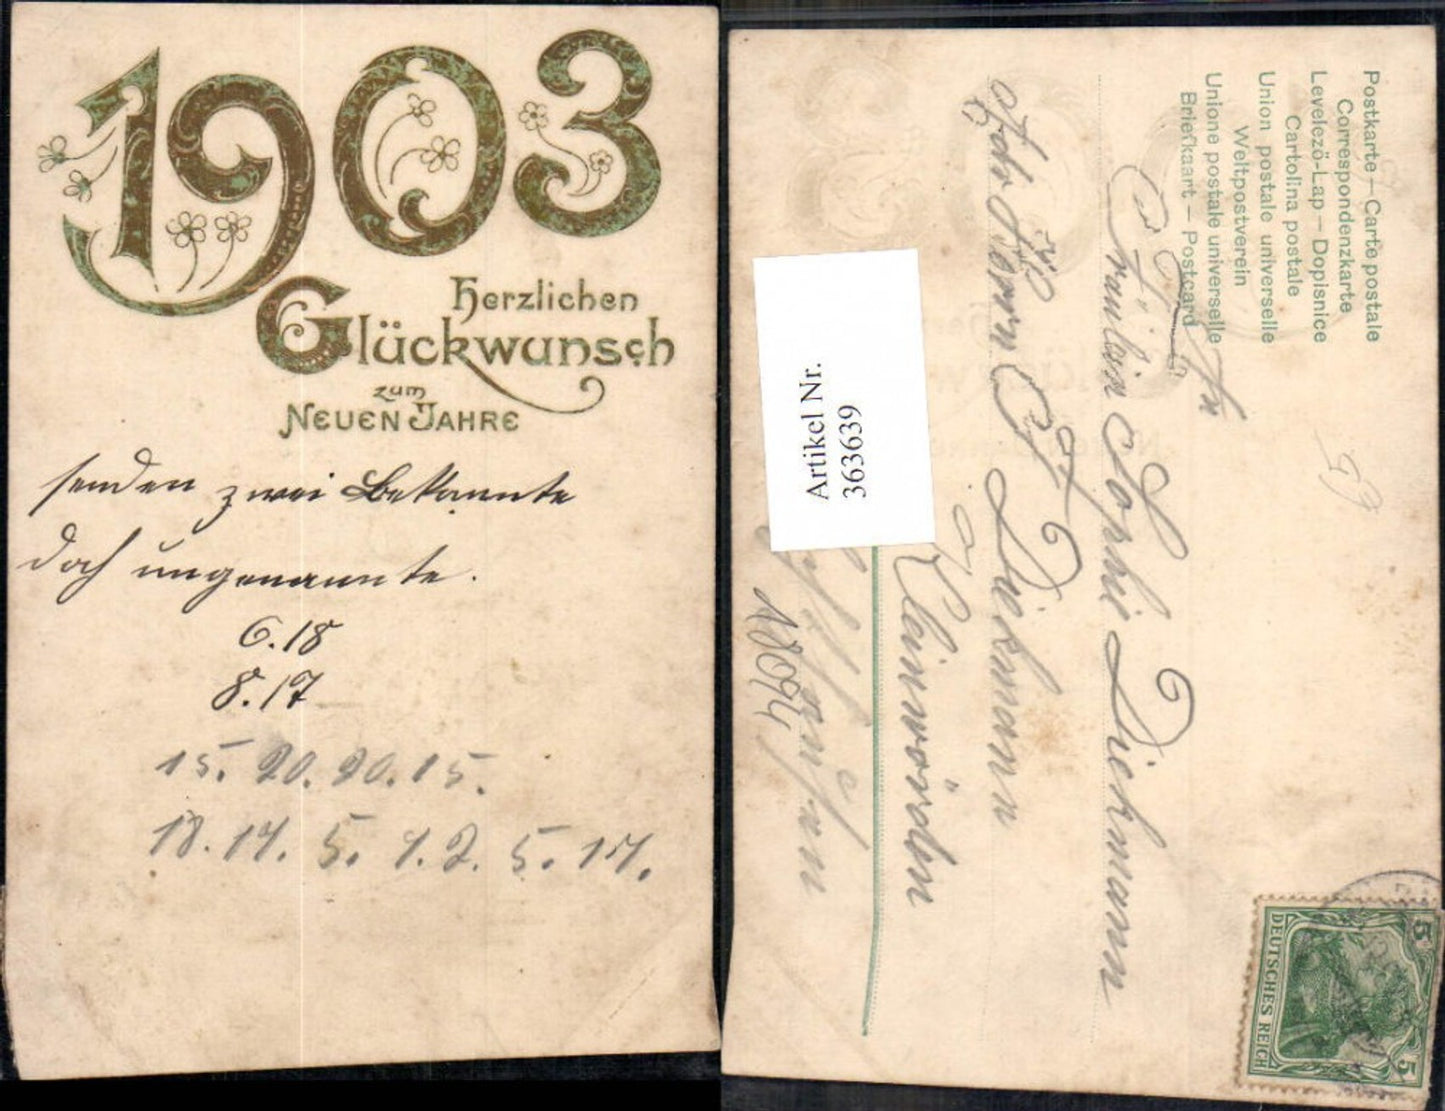 1903
Herzlichen
Glückwunsch
zum
NEUEN JAHRE
senden zwei Bekannte
doch ungenannte.
6.18
8.17
15. 20. 20. 15.
18. 14. 5. 1. 2. 5. 14.
Postkarte — Carte postale
Correspondenzkarte
Levelező-Lap — Dopisnice
Cartolina postale
Union postale universelle
Weltpostverein
Unione postale universelle
Briefkaart — Postcard
An
Fräulein Sophie Dieckmann
Herrn Dieckmann
Kleinwörden
Artikel Nr.
363639
5
DEUTSCHES REICH
5